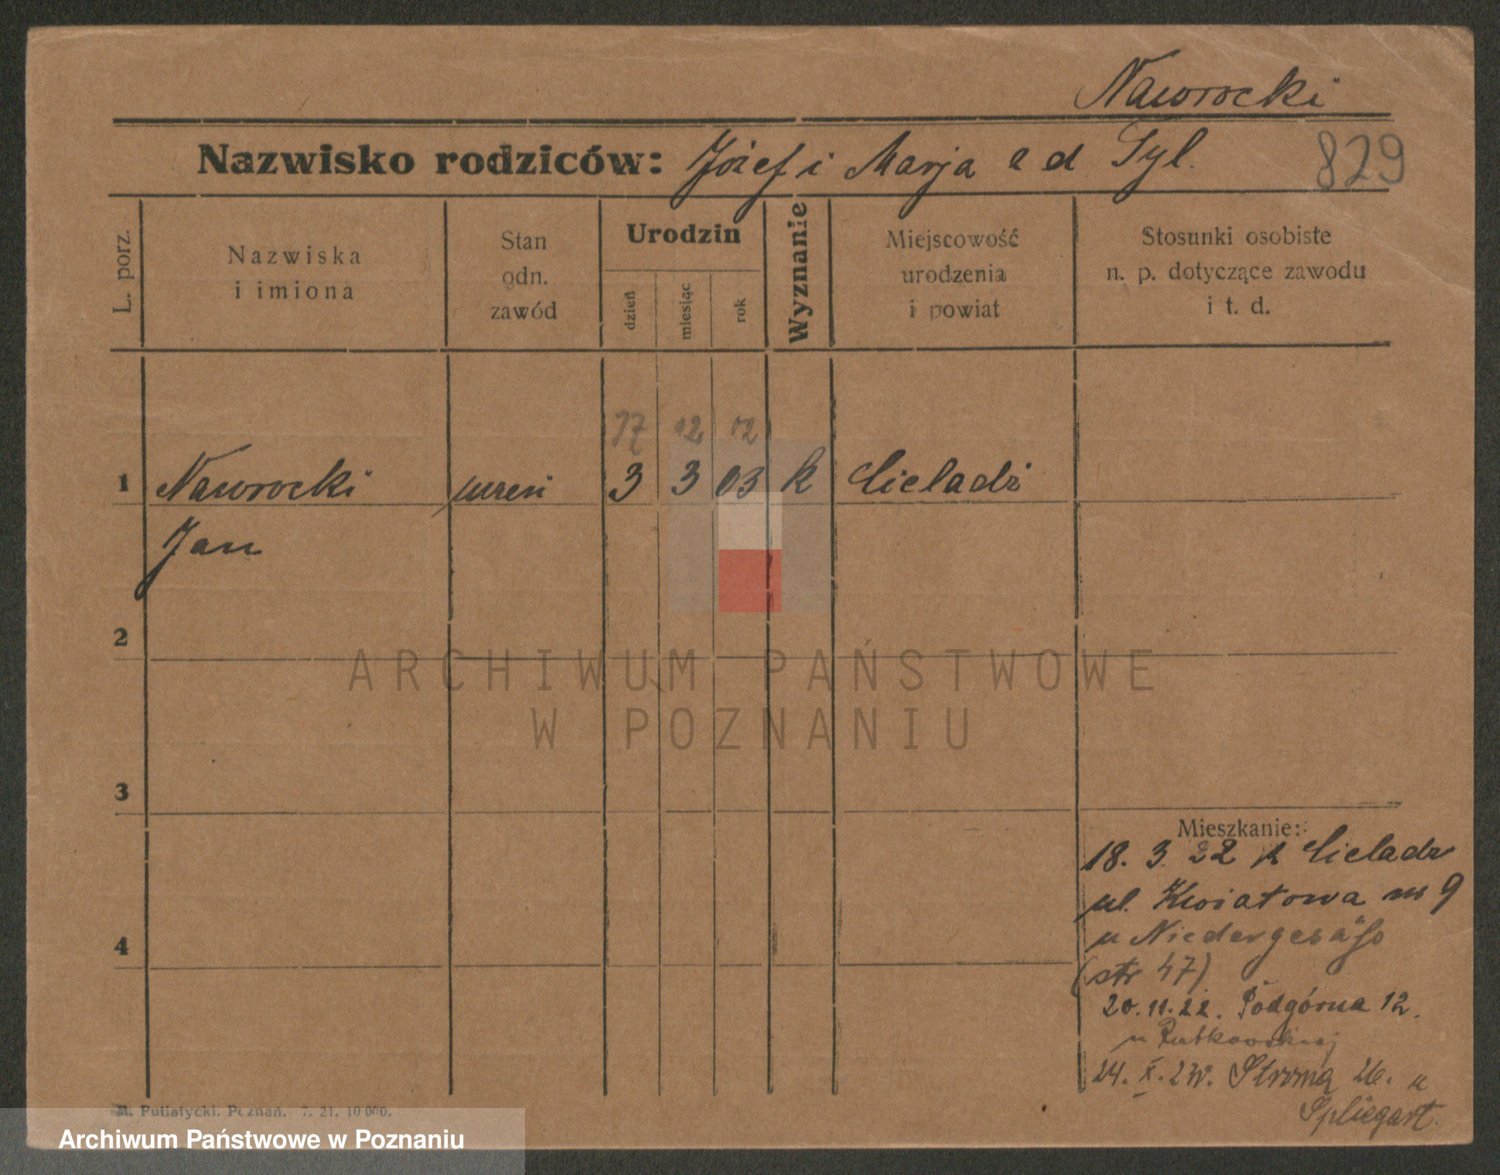 Nawrocki
Nazwisko rodziców: Józef i Marja a d Tyl.
829
L. porz.
Nazwiska
i imiona
Stan
odn.
zawód
Urodzin
dzień
miesiąc
rok
Wyznanie
Miejscowość
urodzenia
i powiat
Stosunki osobiste
n. p. dotyczące zawodu
i t. d.
17 12 02
1 Nawrocki uczeń 3 3 03 k Cieladź
Jan
2
ARCHIWUM PAŃSTWOWE
W POZNANIU
3
Mieszkanie:
18. 3. 22 Cieladz
ul. Kwiatowa 9
u Niedergesäß
(str 47)
4
20.11.22. Podgórna 12.
u
24. X. 2 Stroma 26. u
Spliegart.
M. Putiatycki. Poznań. 7. 21. 10 000.
Archiwum Państwowe w Poznaniu